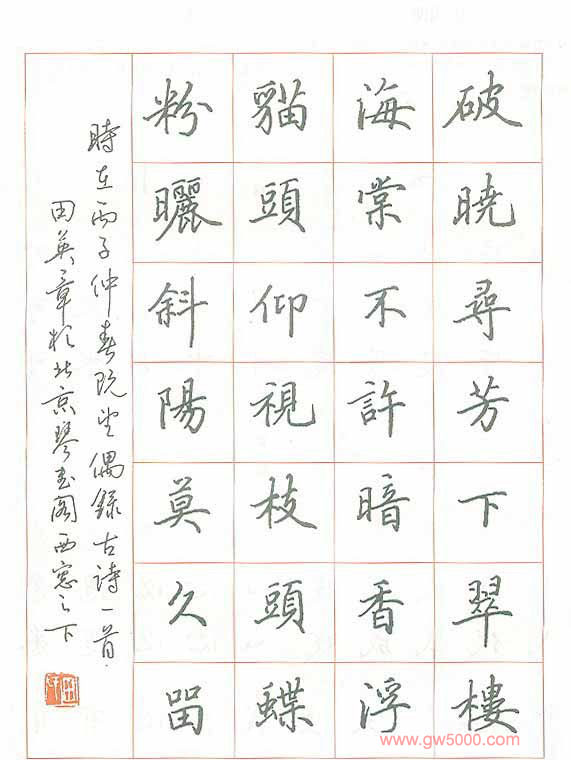 破曉尋芳下翠樓
海棠不許暗香浮
貓頭仰視枝頭蝶
粉曬斜陽莫久留
時在丙子仲春既望偶錄古詩一首
田英章於北京琴書閣西窓之下
www.gw5000.com